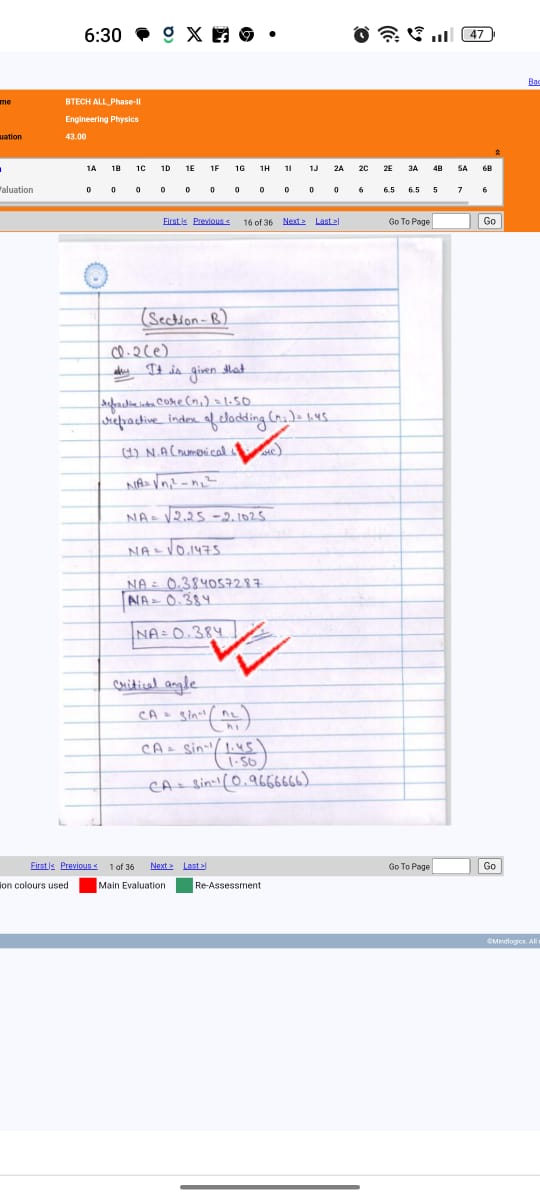 6:30
47
Bac
me
BTECH ALL_Phase-II
Engineering Physics
uation
43.00
1A 1B 1C 1D 1E 1F 1G 1H 1I 1J 2A 2C 2E 3A 4B 5A 6B
Valuation 0 0 0 0 0 0 0 0 0 0 0 6 6.5 6.5 5 7 6
First |< Previous < 16 of 36 Next > Last >| Go To Page Go
(Section-B)
Q.2(e)
It is given that
refractive index core (n₁) = 1.50
refractive index of cladding (n₂) = 1.45
(1) N.A (numerical
NA = √n₁² - n₂²
NA = √2.25 - 2.1025
NA = √0.1475
NA = 0.384057287
NA = 0.384
NA = 0.384
Critical angle
CA = sin⁻¹ (n₂/n₁)
CA = sin⁻¹ (1.45/1.50)
CA = sin⁻¹ (0.9666666)
First |< Previous < 1 of 36 Next > Last >| Go To Page Go
ion colours used Main Evaluation Re-Assessment
©Mindlogicx. All